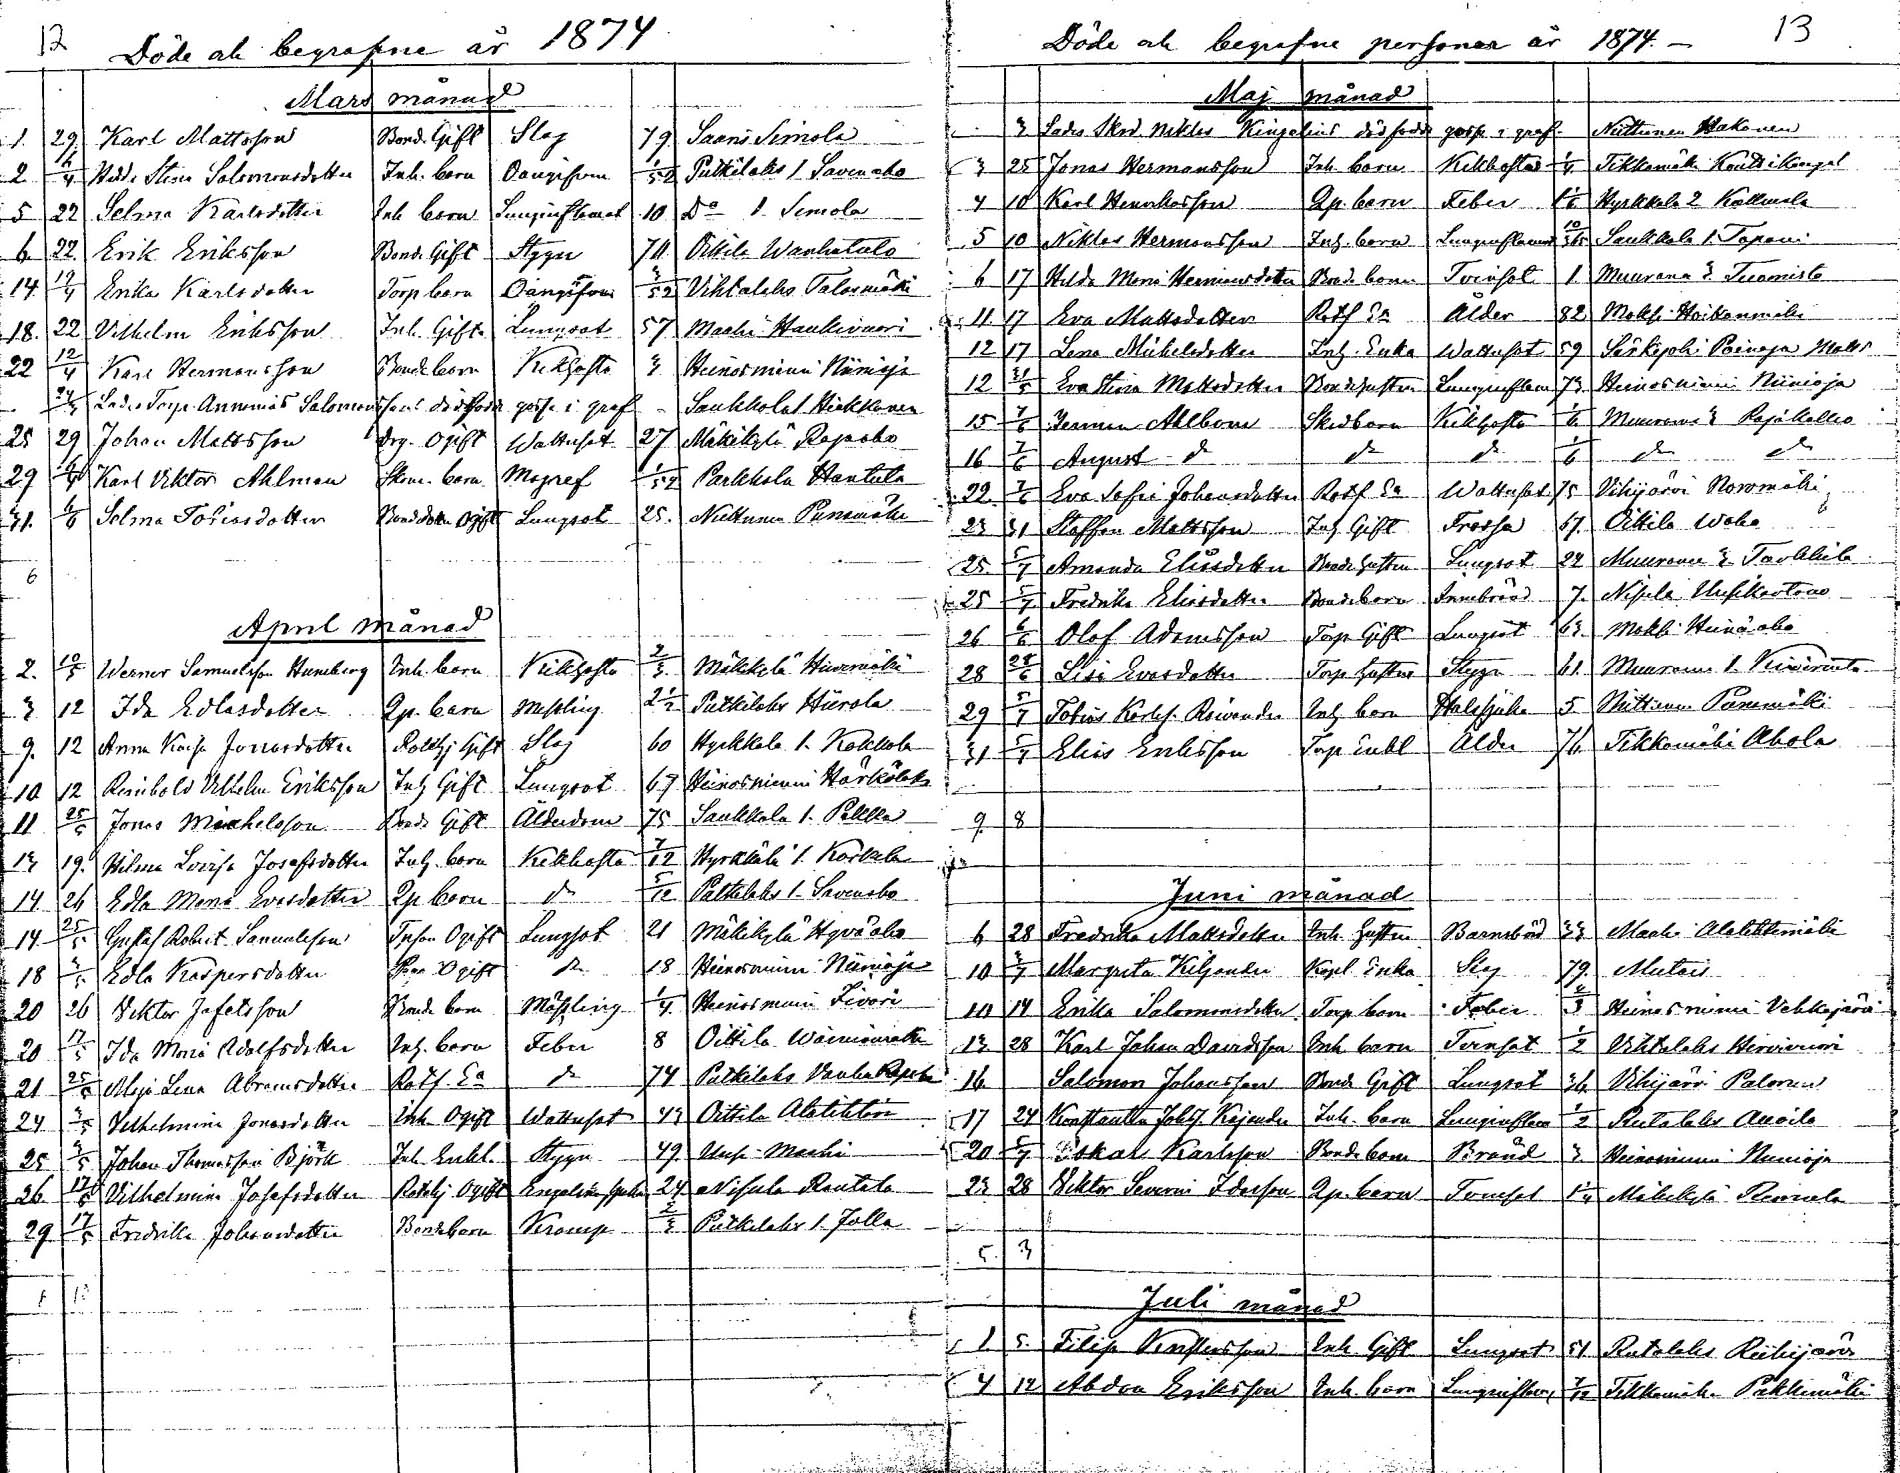 12 Döde ock begrafne år 1874
Mars månad
1. 29. Karl Mattsson Bond. Gift Slag 79 Saanis Simola
2 6/4 Hedd. Stina Salomonsdotter Inh. barn Oangifven 1/52 Putkilaks 1. Savenaho
5 22 Selma Karlsdotter Inh barn Lunginflamat 10 Do 1. Simola
6. 22. Erik Eriksson Bond. Gift Stygn 70 Oittila Wanhatalo
14 19/4 Erika Karlsdotter Torp barn Oangifven 3/52 Vihtalaks Talasmäki
18. 22 Vilhelm Eriksson Inh. Gift Lungsot 57 Maahi Haukivuori
22 12/4 Karl Hermansson Bonde barn Kikhosta 3 Heinosniemi Niinioja
Lades Torp. Annanias Salomonssons dödfödde gosse i graf - Saukkola 1 Hiekkanen
25 29 Johan Mattsson Drg. Ogift Wattusot 27 Mäkikylä Rapaho
29 6/4 Karl Viktor Ahlman Skom. barn Magref 1/52 Parkkola Hantula
31. Selma Tobiasdotter Bonddotter Ogift Lungsot 25. Nuttunen Punamäki
6
April månad
2. 10/5 Werner Samuelsson Humberg Inh. barn Kikhosta 2/3 Mäkikylä Huvimäki
3 12 Ida Edlasdotter Qp. barn Messling 2 1/2 Putkilaks Hiirola
9. 12 Anna Kajsa Jonasdotter Rothj Gift Slag 60 Hyrkkälä 1. Kokkola
10 12 Reinhold Vilhelm Eriksson Inh Gift Lungsot 67 Heinosniemi Härkälaks
11 25/5 Jonas Michelsson Bond. Gift Ålderdom 75 Saukkola 1. Pekkka
13 19. Hilma Lovisa Josefsdotter Inh. barn Kikhosta 7/12 Hyrkkälä 1. Korkala
14 26 Edla Maria Evasdotter Qp barn do 5/12 Putkilaks 1. Savenaho
14 25/5 Gustaf Robert Samuelsson Inh son Ogift Lungsot 21 Mäkikylä Hyväaho
18 3/5 Edla Kaspersdotter Ogift do 18 Heinosniemi Niinioja
20 26 Viktor Jafetsson Bonde barn Mässling 1/4 Heinosniemi Livori
20 17/5 Ida Maria Adolfsdotter Inh. barn Feber 8 Oittila Wäinönratta
21 25/5 Maja Lena Abramsdotter Rothj. Ea do 74 Putkilaks Vanha Rapala
24 3/5 Vilhelmina Jonasdotter Inh Ogift Wattusot 43 Oittila Alatiktiö
25 3/5 Johan Thomasson Björk Inh. Enkl. Stygn 49 Uusp. Maahi
26. 17/5 Vilhelmina Josefsdotter Rothj Ogift Engelska sjukan 24 Nisula Rantala
29 17/5 Fredrika Johansdotter Bondebarn Kramp 2/3 Putkilaks 1. Jolla
Döde ock begrafne personer år 1874. 13
Maj månad
3 Lades Skrd. Niklas Kingelins dödfödde gosse i graf - Nuttunen Hakanen
3 25 Jonas Hermansson Inh. barn Kikhosta 1/4 Tikkamäki Koutikangel
4 10 Karl Henriksson Qp. barn Feber Hyrkkälä 2 Kallinala
5 10 Niklas Hermansson Inh. barn Lunginflamm Saukkola 1. Tapani
6 17 Hilda Maria Hermansdotter Bonde barn Tvinsot 1. Muurame 3 Tuomisto
11. 17 Eva Mattsdotter Rothj Ea Ålder 82. Moksi Haikanmäki
12 17 Lena Michelsdotter Inh. Enka Wattusot 59 Särkijoki Painoja Matts
12 31/5 Eva Stina Mattsdotter Bonde hustru Lunginflam 73. Heinosniemi Niinioja
15 7/6 Herman Ahlbom Skrd barn Kikhosta 1/6 Muurame 3 Rajakallio
16 7/6 August do do do 1/6 do do
22 7/6 Eva Sofia Johansdotter Rothj Ea Wattusot 75 Vihijärvi Noromäki
23 31 Staffan Mattsson Inh Gift Frossa 67. Oittila Waha
25. 5/7 Amanda Eliasdotter Bonde hustru Lungsot 22 Muurame 3 Tavkkila
25 5/7 Fredrika Eliasdotter Bondebarn Innebränd 7. Nisula Uusikartano
26 6/6 Olof Adamsson Torp Gift Lungsot 63. Moksi Heinäaho
28 28/6 Lisa Evasdotter Torp hustru Stygn 61. Muurame 1. Kiviranta
29 5/7 Tobias Karlss. Reivander Inh barn Halssjuka 5 Nuttunen Punamäki
31 5/7 Elias Eriksson Torp Enkl Ålder 76. Tikkamäki Ahola
9 8
Juni månad
6 28 Fredrika Mattsdotter Inh hustru Barnsbörd 33 Maahi Alatiktimäki
10 5/7 Margreta Kiljander Kapl. Enka Slag 79. Mutais
10 14 Erika Salomonsdotter Torp barn Feber Heinosniemi Vehkajärvi
13 28 Karl Johan Davidsson Inh barn Tvinsot 1/2 Vihtalaks Hirvivuori
16. Salomon Johansson Bonde Gift Lungsot 36. Vihijärvi Palonen
17 24 Konstantin Johss. Kajander Inh. barn Lunginflam 1/2 Rutalaks Anoila
20 5/7 Oskar Karlsson Bonde barn Bränd 3. Heinosniemi Niinioja
23 28 Viktor Severin Idasson Qp. barn Tvinsot 1 1/4 Mäkikylä Remula
5 3
Juli månad
1 5. Filip Kristersson Inh Gift Lungsot 51 Rutalaks Riihijärvi
4 12 Abdon Eriksson Inh. barn Lunginflam. 7/12 Tikkamäki Pukkimäki